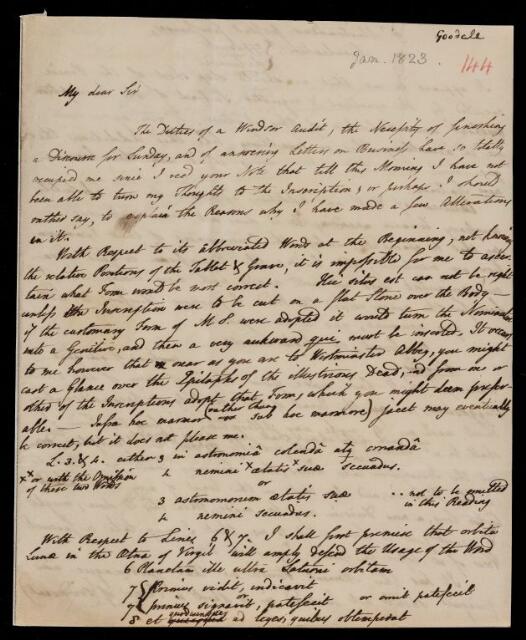 Goodall
Jan. 1823.
144
My dear Sir
The Duties of a Windsor Audit, the Necessity of finishing
a Discourse for Sunday, and of answering Letters on Business have so totally
occupied me since I read your Note that till this Morning I have not
been able to turn my Thoughts to the Inscription, or perhaps I should
rather say, to explain the Reasons why I have made a few Alterations
in it.
With Respect to its abbreviated Words at the Beginning, not knowing
the relative Positions of the Tablet & Grave, it is impossible for me to ascer-
tain what Form would be most correct. Hic situs est can not be right
unless the Inscription were to be cut on a flat Stone over the Body —
if the customary Form of M. S. were adopted it would turn the Nominative
into a Genitive, and then a very awkward qui must be inserted. It occurs
to me however that near as you are to Westminster Abbey, you might
cast a Glance over the Epitaphs of the illustrious Dead, and from one or
other of the Inscriptions adopt that Form, which you might deem prefer-
able. — Infra hoc marmor (rather than sub hoc marmore) jacet may eventually
be correct, but it does not please me.
L. 3. & 4. either 3 in astronomiâ colendâ atq ornandâ
x x or with the Omission
of these two Words
4 nemini x ætatis x suæ secundus.
or
3 astronomorum ætatis suæ
.. not to be omitted
in this Reading
4 nemini secundus.
With Respect to Lines 6 & 7. I shall first premise that orbita
Lunæ in the Ætna of Virgil will amply defend the Usage of the Word
6 Planetam ille ultra Saturni orbitam
7 primus vidit, indicavit
or
7 primus signavit, patefecit or omit patefecit
8 et ad leges, quibus obtemperat